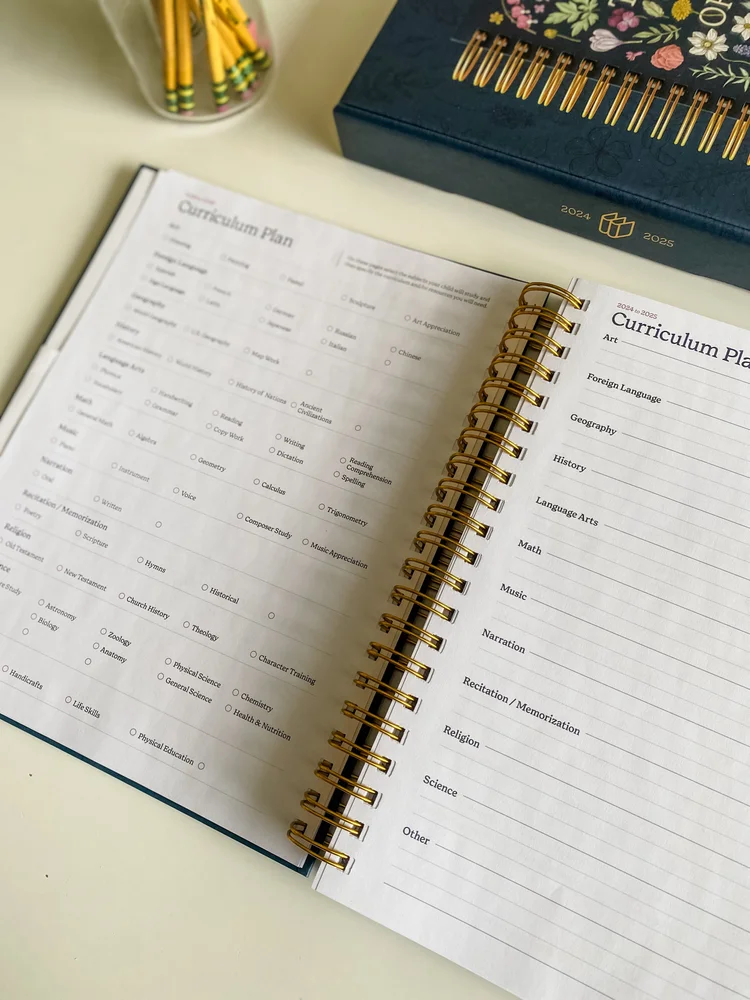 2024
2025
Curriculum Plan
On these pages select the subjects your child will study and
then specify the curriculum and/or resources you will need.
Art
Drawing
Painting
Pastel
Sculpture
Art Appreciation
Foreign Language
Spanish
French
German
Russian
Chinese
Sign Language
Latin
Japanese
Italian
Geography
World Geography
U.S. Geography
Map Work
History
American History
World History
History of Nations
Ancient
Civilizations
Language Arts
Phonics
Handwriting
Reading
Writing
Reading
Comprehension
Vocabulary
Grammar
Copy Work
Dictation
Spelling
Math
General Math
Algebra
Geometry
Calculus
Trigonometry
Music
Piano
Instrument
Voice
Composer Study
Music Appreciation
Narration
Oral
Written
Recitation / Memorization
Poetry
Scripture
Hymns
Historical
Religion
Old Testament
New Testament
Church History
Theology
Character Training
Astronomy
Zoology
Physical Science
Chemistry
Biology
Anatomy
General Science
Health & Nutrition
Handicrafts
Life Skills
Physical Education
2024 to 2025
Curriculum Pla
Art
Foreign Language
Geography
History
Language Arts
Math
Music
Narration
Recitation / Memorization
Religion
Science
Other